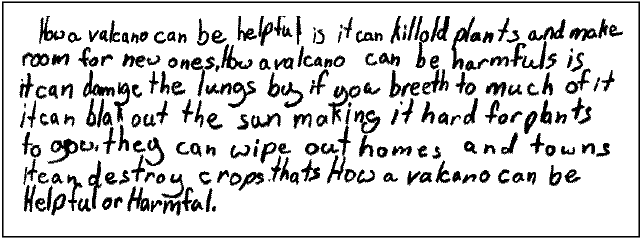 How a valcano can be helpful is it can kill old plants and make
room for new ones, How a valcano can be harmfuls is
it can damige the lungs buy if you breeth to much of it
it can blak out the sun making it hard for plants
to grow. they can wipe out homes and towns
It can destroy crops. thats How a valcano can be
Helpful or Harmful.